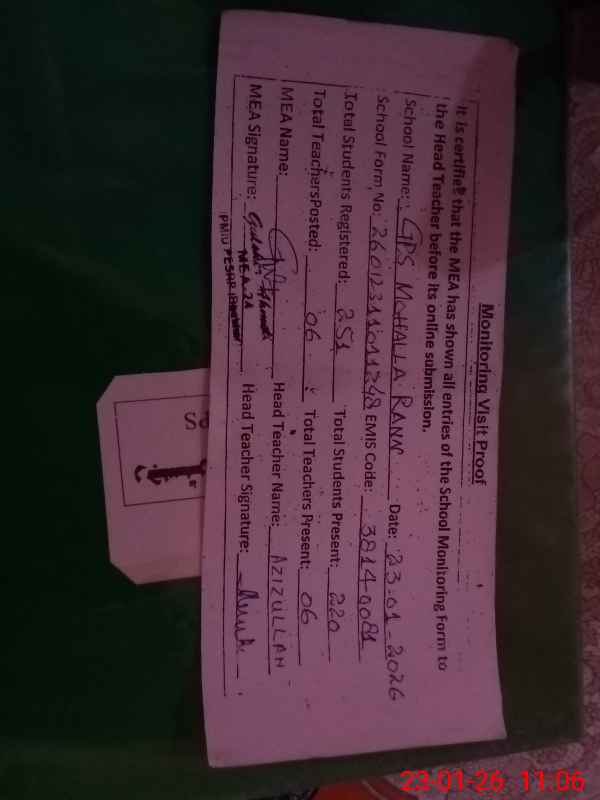 Monitoring Visit Proof
It is certified that the MEA has shown all entries of the School Monitoring Form to
the Head Teacher before its online submission.
School Name: GPS MOHALLA RANN Date: 23-01-2026
School Form No: 26012311011348 EMIS Code: 38140081
Total Students Registered: 251 Total Students Present: 220
Total TeachersPosted: 06 Total Teachers Present: 06
MEA Name: Head Teacher Name: AZIZULLAH
MEA Signature: Head Teacher Signature:
MEA-24
PMIU PESRP
PS
23-01-26 11:06